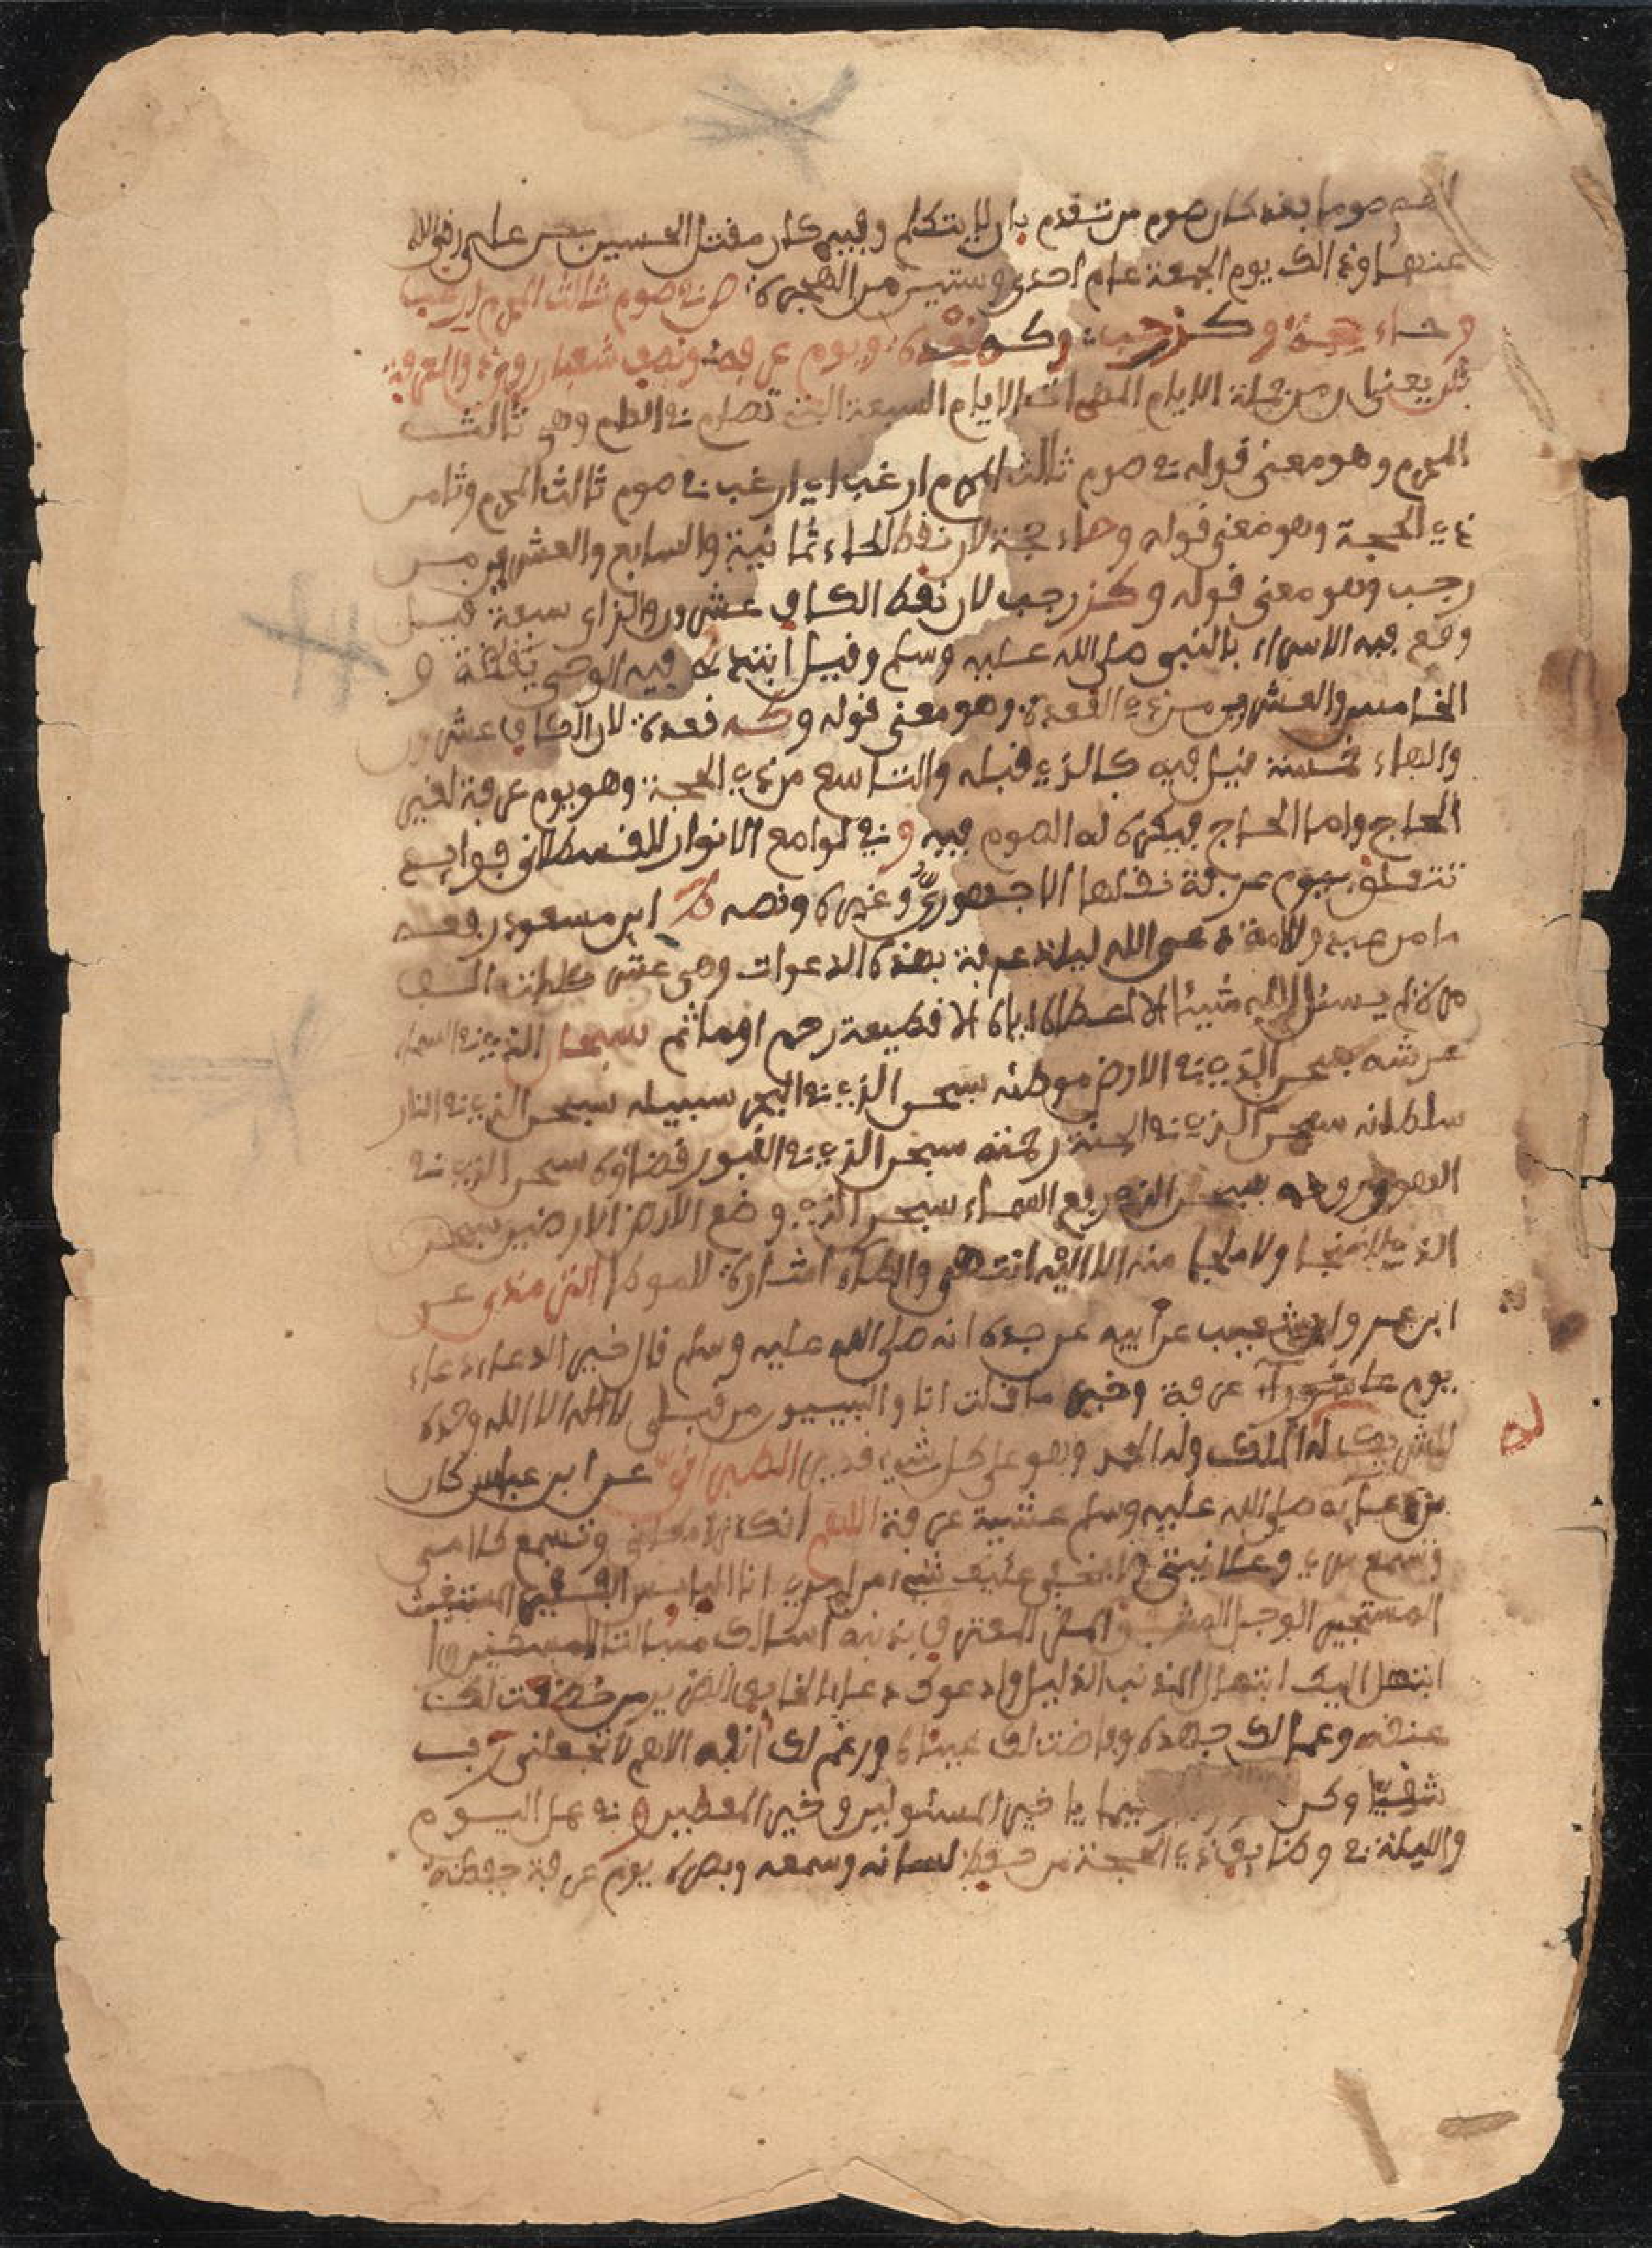 صوما بعد كان صوم من تقدم بان لا يتكلم وفيه كان مقتل الحسين بن على رضى الله
عنهما وذالك يوم الجمعة عام احدى وستين من الهجرة ص في صوم ثالث المحرم ارغب
وحاء حجة وكز رجب وكه قعدة ويوم عرفة ونصف شعبان
ش يعنى ان من جملة الايام الايام السبعة التى تصام في العام وهى ثالث
المحرم وهو معنى قوله في صوم ثالث المحرم ارغب اى ارغب في صوم ثالث المحرم وثامن
ذى الحجة وهو معنى قوله وحاء حجة لان نقط الحاء ثمانية والسابع والعشرين من
رجب وهو معنى قوله وكز رجب لان نقط الكاف عشرون والزاى سبعة قيل
وقع فيه الاسراء بالنبى صلى الله عليه وسلم وقيل ابتدئ فيه الوحى يقظة و
الخامس والعشرين من ذى القعدة وهو معنى قوله وكه قعدة لان الكاف عشرون
والهاء خمسة قيل فيه كالذى قبله والتاسع من ذى الحجة وهو يوم عرفة لغير
الحاج واما الحاج فيكره له الصوم فيه وفي لوامع الانوار للقسطلانى فوايد
تتعلق بيوم عرفة نقلها الاجهورى وغيره ونصه ابن مسعود رفعه
ما من عبد ولا امة دعى الله ليلة عرفة بهذه الدعوات وهى عشر كلمات الف
مرة لم يسئل الله شيئا الا اعطاه اياه الا قطيعة رحم او ماثم سبحن الذى في السماء
عرشه سبحن الذى في الارض موطئه سبحن الذى في البحر سبيله سبحن الذى في النار
سلطانه سبحن الذى في الجنة رحمته سبحن الذى في القبور قضاؤه سبحن الذى في
الهوى روحه سبحن الذى رفع السماء سبحن الذى وضع الارض سبحن
الذى لا منجا ولا ملجا منه الا اليه انتهى
ابن شعيب عن ابيه عن جده انه صلى الله عليه وسلم قال خير الدعاء دعاء
يوم عرفة وخير ما قلت انا والنبييون من قبلى لا اله الا الله وحده
لا شريك له له الملك وله الحمد وهو على كل شىء قدير الطبرانى عن ابن عباس كان
من دعائه صلى الله عليه وسلم عشية عرفة اللهم انك ترى مكانى وتسمع كلامى
وتسمع سرى وعلانيتى لا يخفى عليك شىء من امرى انا البايس الفقير المستغيث
المستجير الوجل المشفق المقر المعترف بذنبه اسالك مسالة المسكين
ابتهل اليك ابتهال المذنب الذليل وادعوك دعاء الخايف الضرير من خضعت لك
عنقه جسده وفاضت لك عيناه ورغم لك انفه اللهم لا تجعلنى رب
شقيا وكن يا خير المسئولين وخير المعطين
والليلة في ذى الحجة من حفظ لسانه وسمعه وبصره يوم عرفة